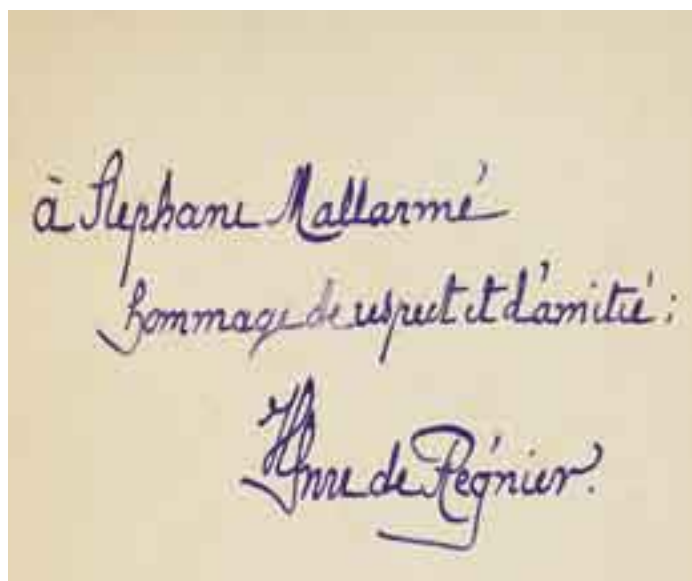 à Stéphane Mallarmé
hommage de respect et d'amitié :
Henri de Régnier.